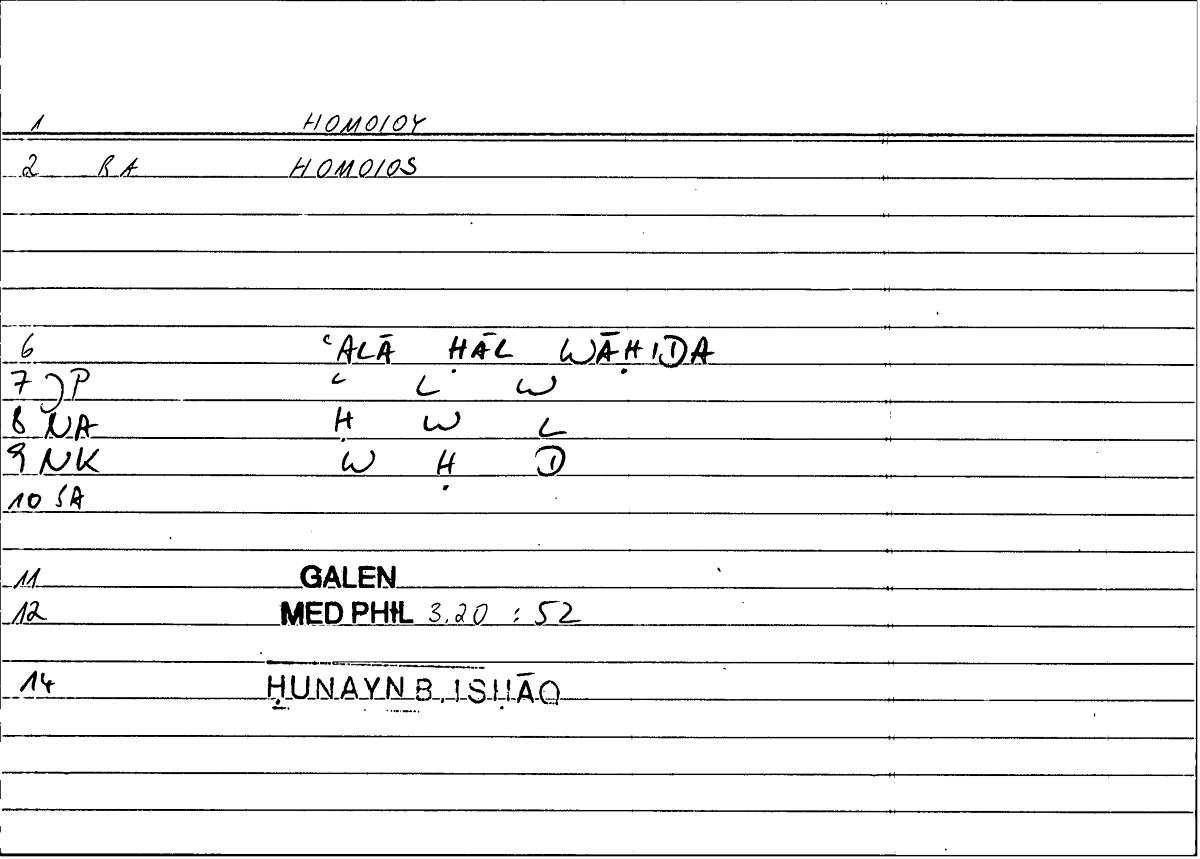 1 HOMOIOY
2 RA HOMOIOS
6 ʿALĀ ḤĀL WĀḤIDA
7 JP ʿ L W
8 NA Ḥ W L
9 NK W Ḥ D
10 SA
11 GALEN
12 MED PHIL 3.20 : 52
14 ḤUNAYN B. ISḤĀQ